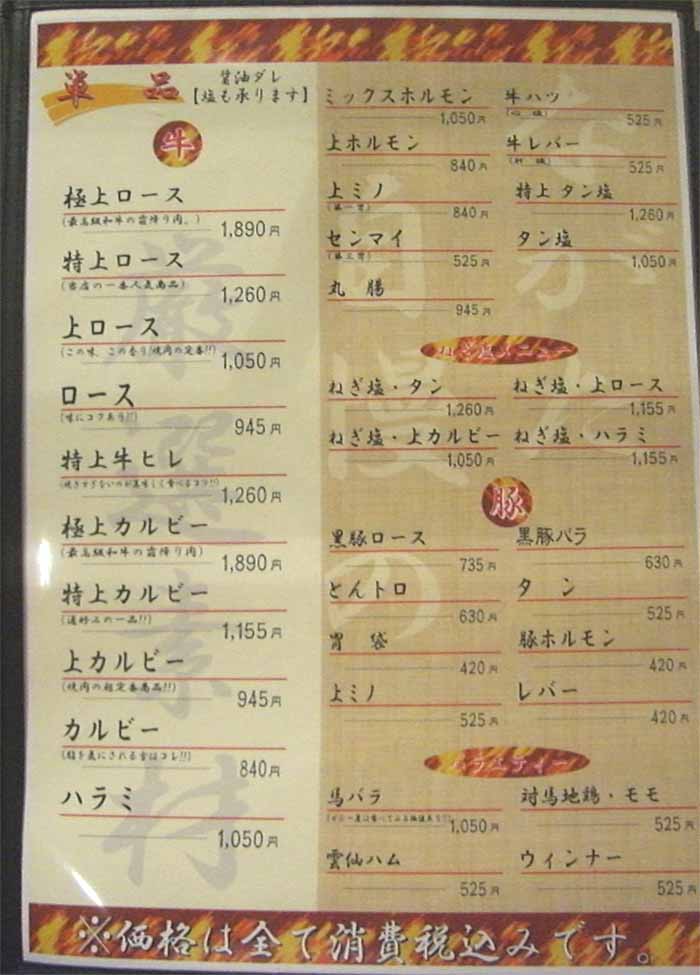 単品
醤油ダレ
【塩も承ります】
牛
極上ロース
(最高級和牛の霜降り肉。)
1,890円
特上ロース
(当店の一番人気商品)
1,260円
上ロース
(この味、この香り!焼肉の定番!!)
1,050円
ロース
(味にコクあり!!)
945円
特上牛ヒレ
(焼きすぎないのが美味しく食べるコツ!!)
1,260円
極上カルビー
(最高級和牛の霜降り肉)
1,890円
特上カルビー
(通好みの一品!!)
1,155円
上カルビー
(焼肉の超定番商品!!)
945円
カルビー
(脂を気にされる方はコレ!!)
840円
ハラミ
1,050円
厳選素材
ミックスホルモン
1,050円
上ホルモン
840円
上ミノ
(第一胃)
840円
センマイ
(第三胃)
525円
丸腸
945円
牛ハツ
(心臓)
525円
牛レバー
(肝臓)
525円
特上タン塩
1,260円
タン塩
1,050円
ねぎ塩メニュー
ねぎ塩・タン
1,260円
ねぎ塩・上ロース
1,155円
ねぎ塩・上カルビー
1,050円
ねぎ塩・ハラミ
1,155円
豚
黒豚ロース
735円
黒豚バラ
630円
とんトロ
630円
タン
525円
胃袋
420円
豚ホルモン
420円
上ミノ
525円
レバー
420円
バラエティー
馬バラ
1,050円
対馬地鶏・モモ
525円
雲仙ハム
525円
ウィンナー
525円
※価格は全て消費税込みです。